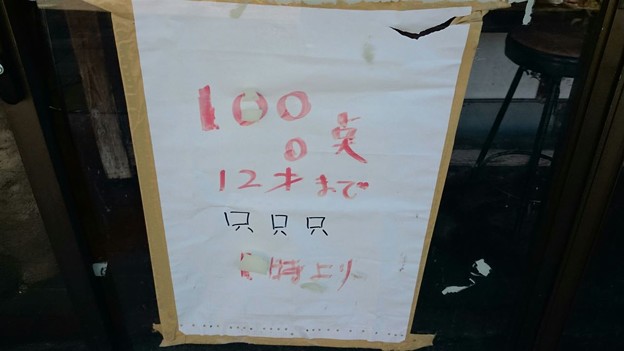 100
0点
12才まで
只只只
1時より